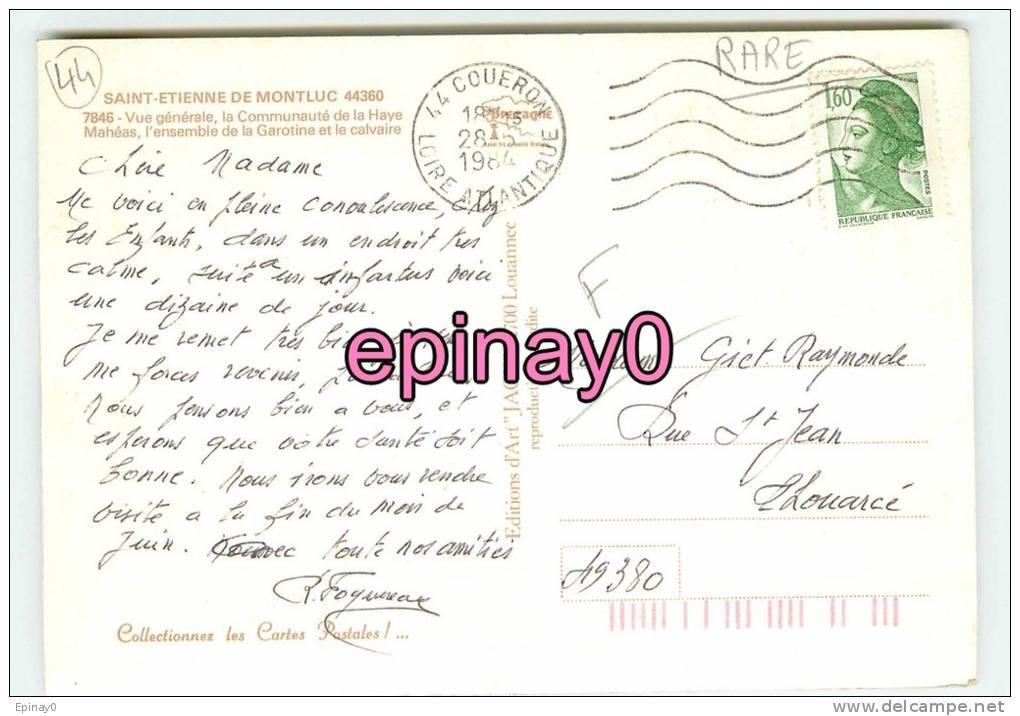 44
RARE
SAINT-ETIENNE DE MONTLUC 44360
7846 - Vue générale, la Communauté de la Haye
Mahéas, l'ensemble de la Garotine et le calvaire
44 COUERON
28-5
1984
LOIRE ATLANTIQUE
Bretagne
1,60
POSTES
REPUBLIQUE FRANÇAISE
Chère Madame
Me voici en pleine convalescence, chez
les Enfants, dans un endroit tres
calme, suite a un infartus voici
une dizaine de jour.
Je me remet tres
me forces revenir,
Nous pensons bien a vous, et
esperons que votre santé soit
bonne. Nous irons vous rendre
visite a la fin du mois de
Juin. toute nos amitiés
Collectionnez les Cartes Postales ! ...
Editions d'Art "JA 700 Louannec
F
epinay0
Giet Raymonde
Rue St Jean
Thouarcé
49380
Epinay0
www.delcampe.net